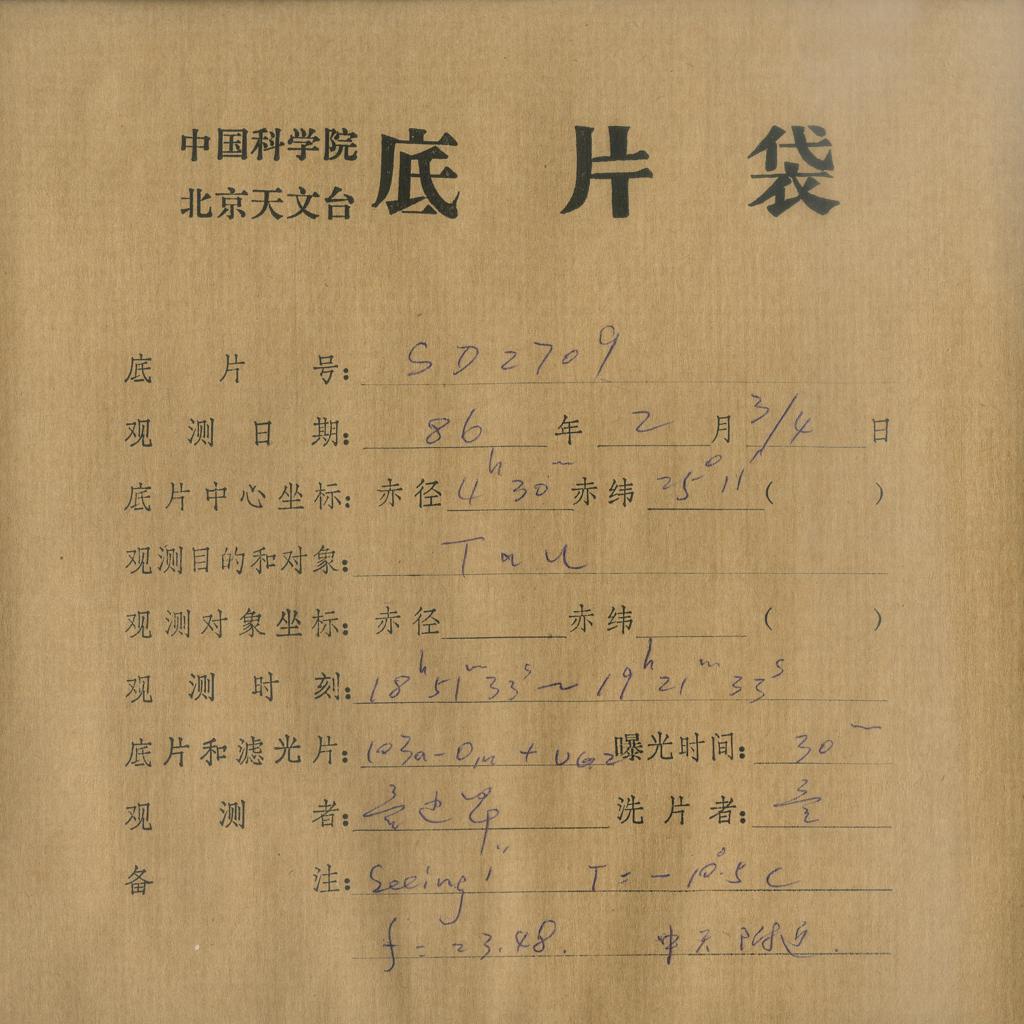 中国科学院
北京天文台 底片袋
底片号: SD2709
观测日期: 86年2月3/4日
底片中心坐标: 赤径 4h30m 赤纬 25°11′ ( )
观测目的和对象: Tau
观测对象坐标: 赤径 赤纬 ( )
观测时刻: 18h51m33s ~ 19h21m33s
底片和滤光片: 103a-O, + UG2 曝光时间: 30m
观测者: 洗片者:
备注: Seeing 1″ T = -10°.5 C
f = 23.48. 中天附近.